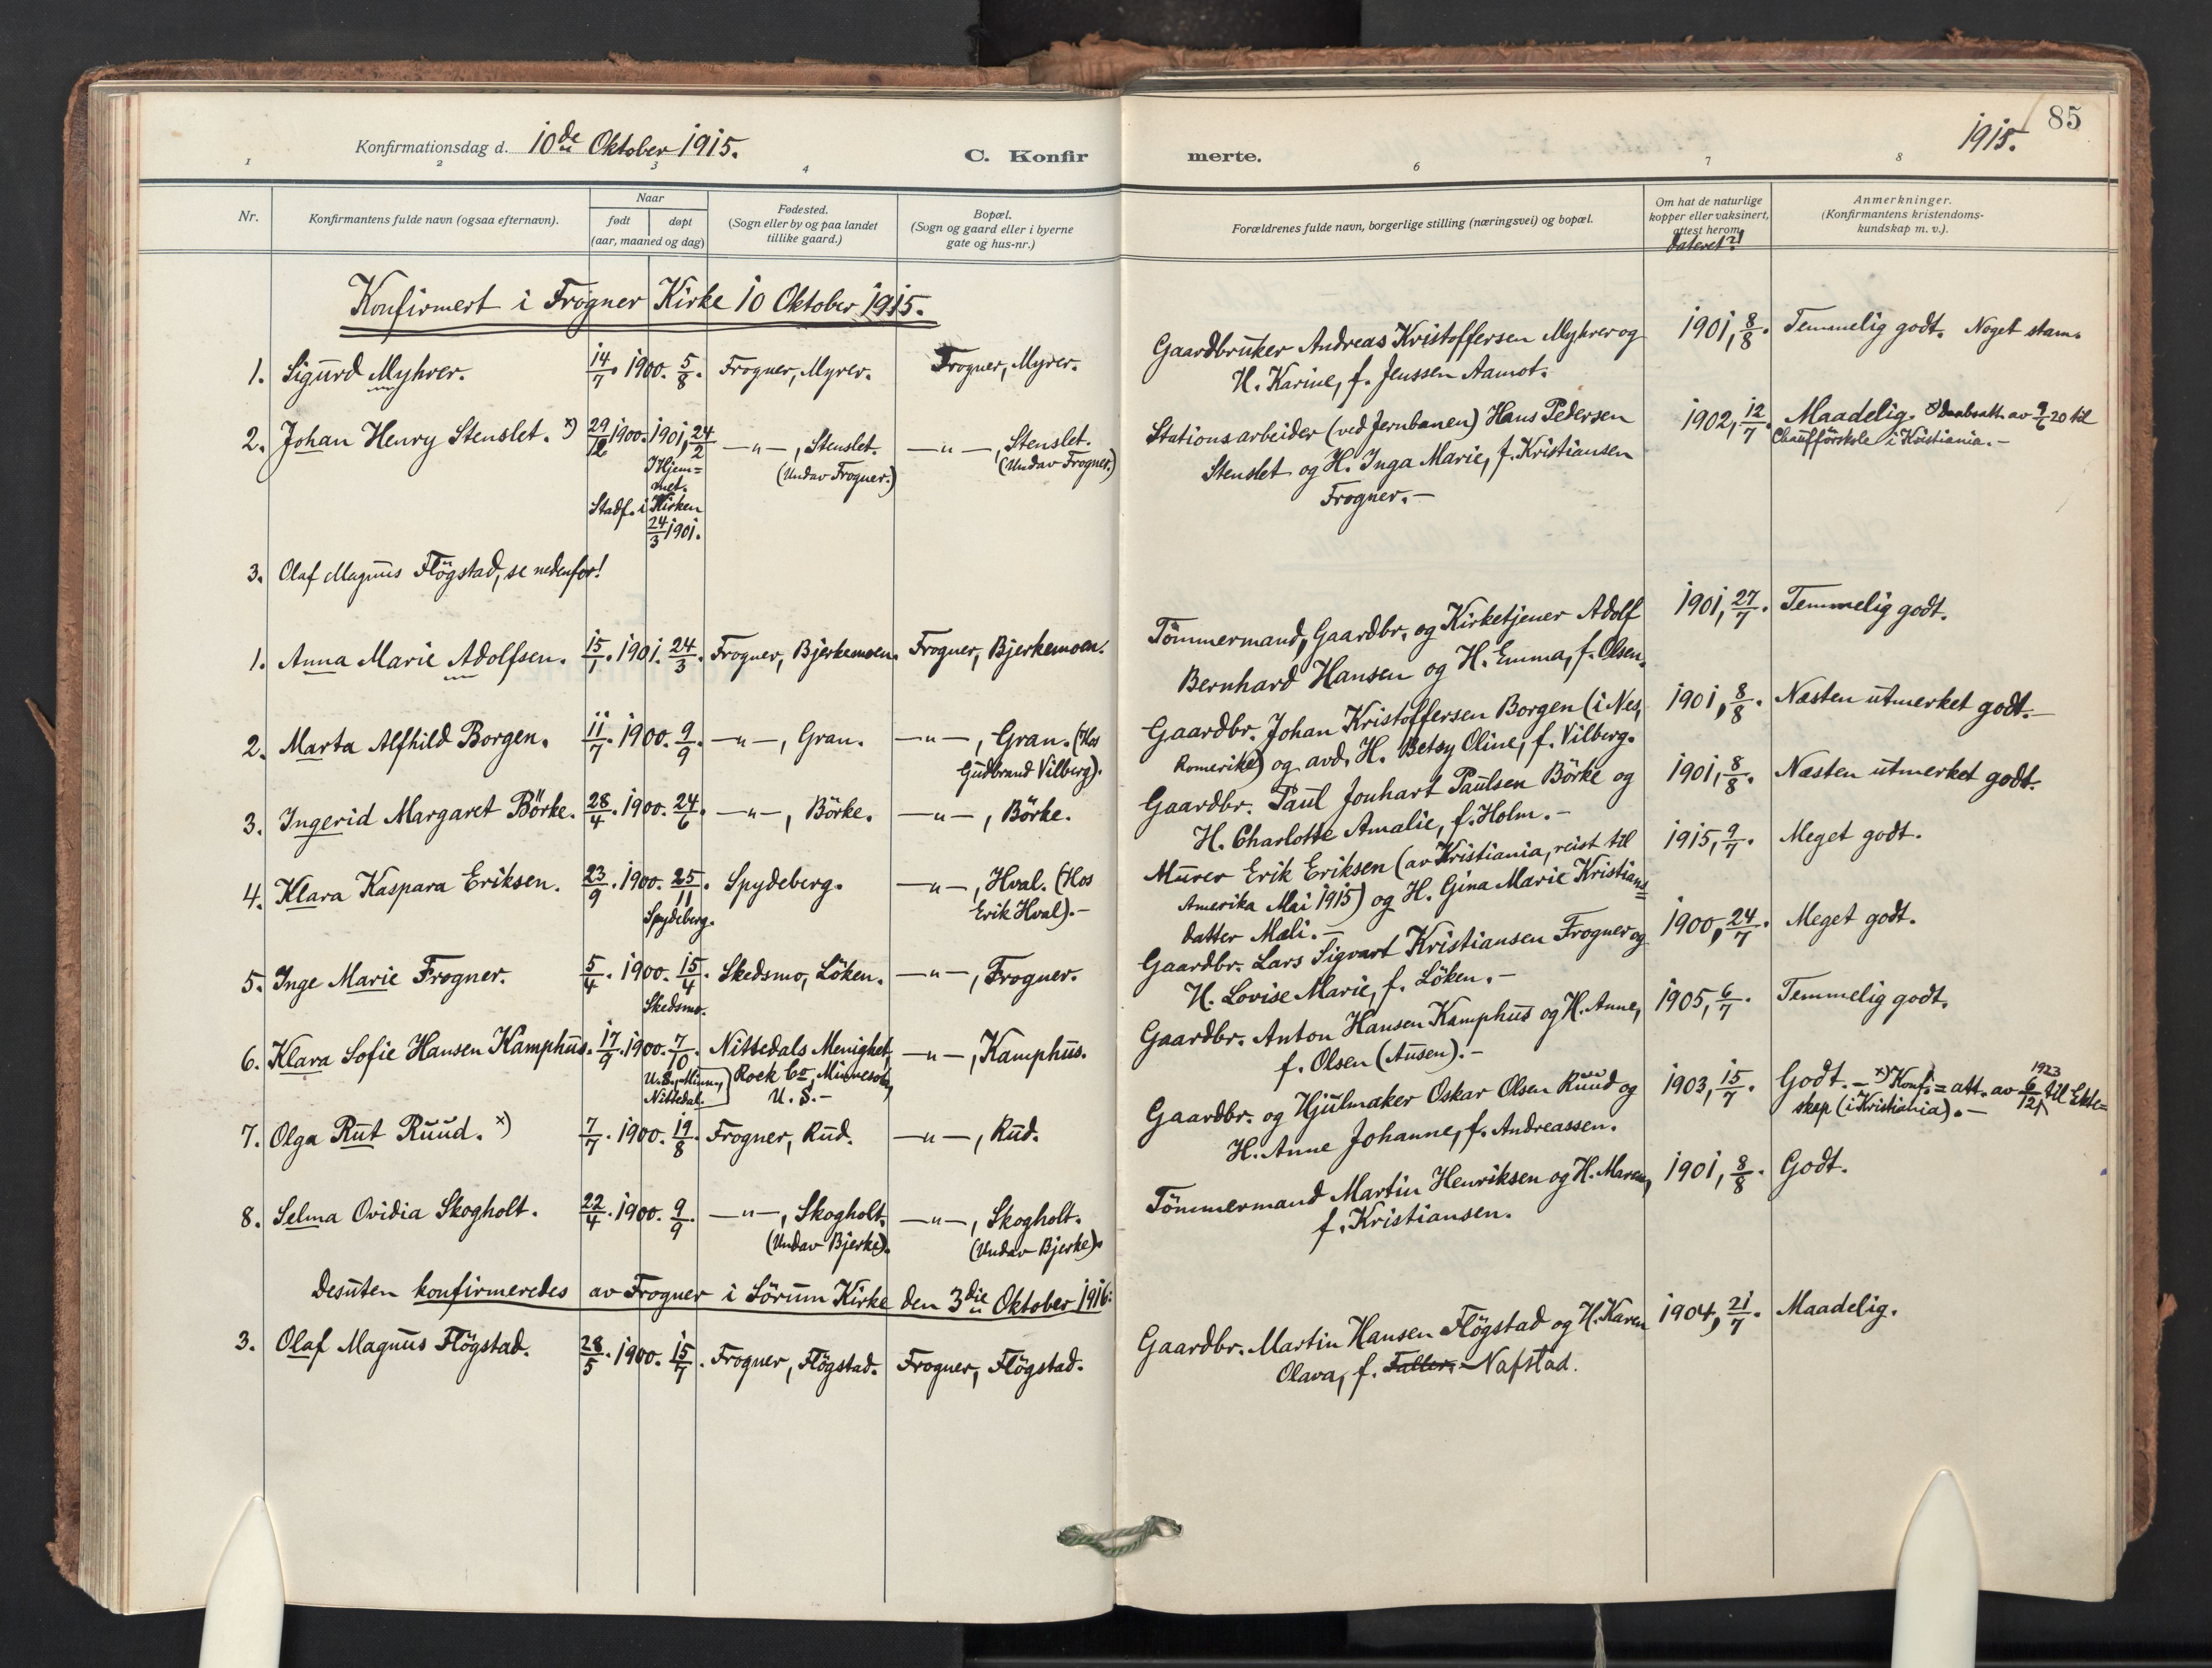 85
1915.
Konfirmationsdag d. 10de Oktober 1915.
C. Konfir merte.
1 2 3 4 6 7 8
Nr.
Konfirmantens fulde navn (ogsaa efternavn).
Naar
født
døpt
(aar, maaned og dag)
Fødested.
(Sogn eller by og paa landet
tillike gaard.)
Bopæl.
(Sogn og gaard eller i byerne
gate og hus-nr.)
Forældrenes fulde navn, borgerlige stilling (næringsvei) og bopæl.
Om hat de naturlige
kopper eller vaksinert,
attest herom
dateret?!
Anmerkninger.
(Konfirmantens kristendoms-
kundskap m. v.).
Konfirmert i Frogner Kirke 10 Oktober 1915.
1. Sigurd Myhrer. 14/7. 1900. 5/8. Frogner, Myrer. Frogner, Myrer. Gaardbruker Andreas Kristoffersen Myhrer og 1901, 8/8. Temmelig godt. Noget stam.
H. Karine, f. Jenssen Aamot.
2. Johan Henry Stenslet. x) 29/12 1900. 1901, 24/2 —"—, Stenslet. —"—, Stenslet. Stationsarbeider (ved Jernbanen) Hans Pedersen 1902, 12/7. Maadelig. x) Daabsatt. av 9/6 20 til
I Hjem=
met.
(Undav Frogner.) (Undav Frogner.) Stenslet og H. Inga Marie, f. Kristiansen Chaufförskole i Kristiania.-
Stadf. i Kirken
24/3 1901.
Frogner.-
3. Olaf Magnus Flögstad, se nedenfor!
1. Anna Marie Adolfsen. 15/1. 1901. 24/3. Frogner, Bjerkemoen. Frogner, Bjerkemoen. Tömmermand, Gaardbr. og Kirketjener Adolf 1901, 27/7. Temmelig godt.
Bernhard Hansen og H. Emma, f. Olsen.
2. Marta Alfhild Borgen. 11/7. 1900. 9/9. —"—, Gran. —"—, Gran. (Hos Gaardbr. Johan Kristoffersen Borgen (i Nes, 1901, 8/8. Næsten utmerket godt.-
Gudbrand Vilberg). Romerike) og avd. H. Betsy Oline, f. Vilberg.
3. Ingerid Margaret Börke. 28/4. 1900. 24/6. —"—, Börke. —"—, Börke. Gaardbr. Paul Jonhart Paulsen Börke og 1901, 8/8. Næsten utmerket godt.
H. Charlotte Amalie, f. Holm.-
4. Klara Kaspara Eriksen. 23/9. 1900. 25/11. Spydeberg. —"—, Hval. (Hos Murer Erik Eriksen (av Kristiania, reist til 1915, 9/7. Meget godt.
Spydeberg. Erik Hval).- Amerika Mai 1915) og H. Gina Marie Kristians=
datter Mæli.-
5. Inge Marie Frogner. 5/4. 1900. 15/4. Skedsmo, Löken. —"—, Frogner. Gaardbr. Lars Sigvart Kristiansen Frogner og 1900, 24/7. Meget godt.
Skedsmo. H. Lovise Marie, f. Löken.-
6. Klara Sofie Hansen Kamphus. 17/9. 1900. 7/10. Nittedals Menighet, —"—, Kamphus. Gaardbr. Anton Hansen Kamphus og H. Anne, 1905, 6/7. Temmelig godt.
U.S., Minn., Rock Co, Minnesota, f. Olsen (Ausen).-
Nittedal. U. S.-
7. Olga Rut Ruud. x) 7/7. 1900. 19/8. Frogner, Rud. —"—, Rud. Gaardbr. og Hjulmaker Oskar Olsen Ruud og 1903, 15/7. Godt.- x) Konf.=att. av 6/12 1923 til Ekte=
H. Anne Johanne, f. Andreassen. skap (i Kristiania).-
8. Selma Ovidia Skogholt. 22/4. 1900. 9/9. —"—, Skogholt. —"—, Skogholt. Tömmermand Martin Henriksen og H. Maren, 1901, 8/8. Godt.
(Undav Bjerke). (Undav Bjerke). f. Kristiansen.
Desuten konfirmeredes av Frogner i Sörum Kirke den 3die Oktober 1916:
3. Olaf Magnus Flögstad. 28/5. 1900. 15/7. Frogner, Flögstad. Frogner, Flögstad. Gaardbr. Martin Hansen Flögstad og H. Karen 1904, 21/7. Maadelig.
Olava, f. Nafstad.